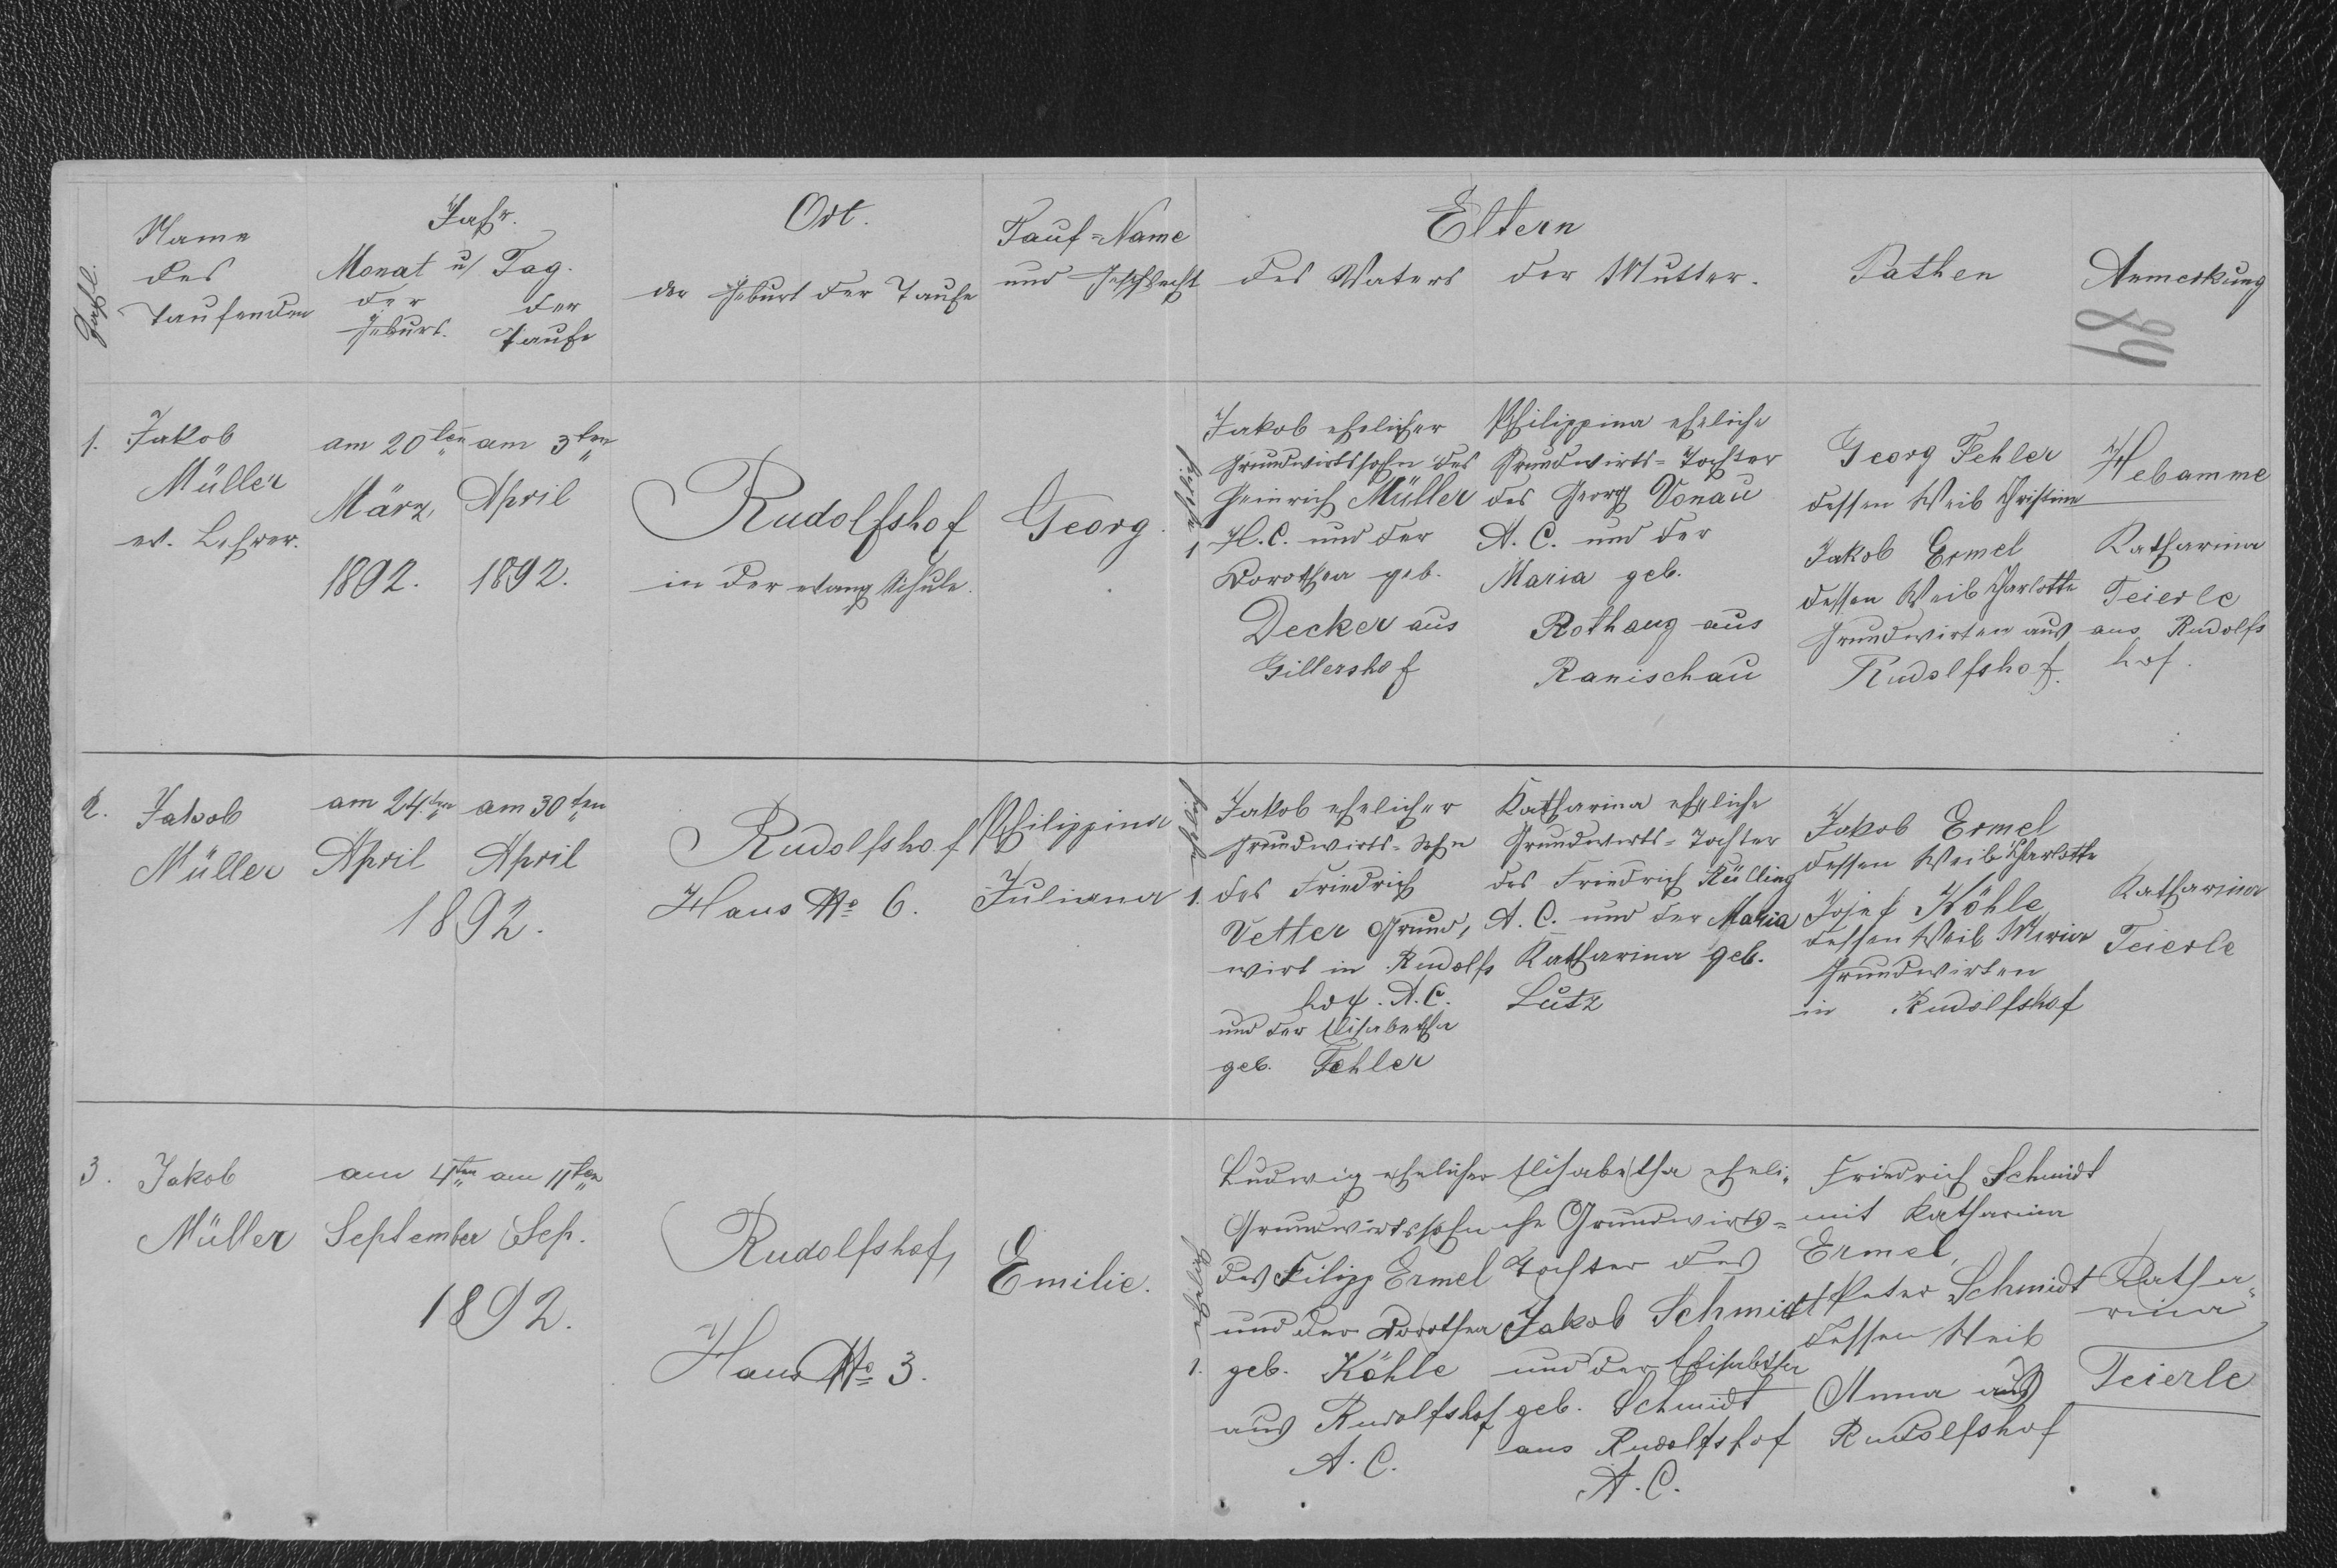 Zahl.
Name
des
Taufenden
Jahr.
Monat u/ Tag.
der
Geburt.
der
Taufe
Ort.
der Geburt der Taufe
Tauf-Name
und Geschlecht
Eltern
des Vaters der Mutter.
Pathen
Anmerkung
68
1. Jakob
Müller
ev. Lehrer.
am 20ten
März,
1892.
am 3ten
April
1892.
Rudolfshof
in der evang Schule.
Georg.
1
Jakob ehelicher
Grundwirtssohn des
Heinrich Müller
H.C. und der
Dorothea geb.
Decker aus
Gillershof
Philippina eheliche
Grundwirts-Tochter
des Georg Vonau
A. C. und der
Maria geb.
Rothaug aus
Ranischau
Georg Fehler
dessen Weib Christine
Jakob Ermel
dessen Weib Charlotte
Grundwirten aus
Rudolfshof.
Hebamme
Katharina
Teierle
aus Rudolfs
hof.
2. Jakob
Müller
am 24ten am 30ten
April April
1892.
Rudolfshof
Haus No 6.
Philippina
Juliana
1.
Jakob ehelicher
Grundwirts-Sohn
des Friedrich
Vetter Grund,
wirt in Rudolfs
hof. A.C.
und der Elisabetha
geb. Fehler
Katharina eheliche
Grundwirts-Tochter
des Friedrich Külling
A. C. und der Maria
Katharina geb.
Lutz
Jakob Ermel
dessen Weib Charlotte
Josef Köhle
dessen Weib Maria
Grundwirten
in Rudolfshof
Katharina
Teierle
3. Jakob
Müller
am 4ten am 11ten
September Sep.
1892.
Rudolfshof,
Haus No 3.
Emilie.
1.
Ludwig ehelicher
Grundwirtssohn
des Filipp Ermel
und der Dorothea
geb. Köhle
aus Rudolfshof
A. C.
Elisabetha eheli„
che Grundwirts-
Tochter des
Jakob Schmidt
und der Elisabetha
geb. Schmidt
aus Rudolfshof
A. C.
Friedrich Schmidt
mit Katharina
Ermel,
Peter Schmidt
dessen Weib
Anna aus
Rudolfshof
Katha„
rina
Teierle